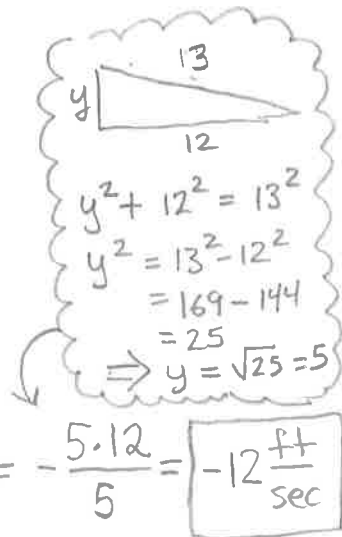 13
y
12
y² + 12² = 13²
y² = 13² - 12²
= 169 - 144
= 25
⇒ y = √25 = 5
= - 5·12/5 = -12 ft/sec